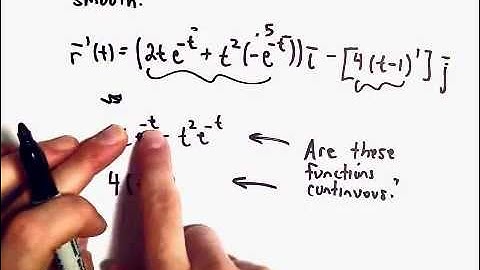 smooth.
r̄'(t) = (2te^-t + t²(-e^-t)) ī - [4(t-1)'] j̄
-t - t²e^-t ← Are these
functions
4( ← continuous?